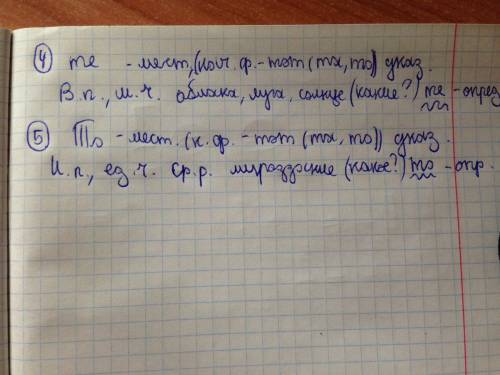 4 те - мест, (нач. ф. - тот (та, то)) указ.
В.п., м.ч. облака, луга, солнце (какие?) те - опред
5 То - мест. (н. ф. - тот (та, то)) указ.
И.п., ед.ч. ср.р. мироздание (какое?) то - опр.